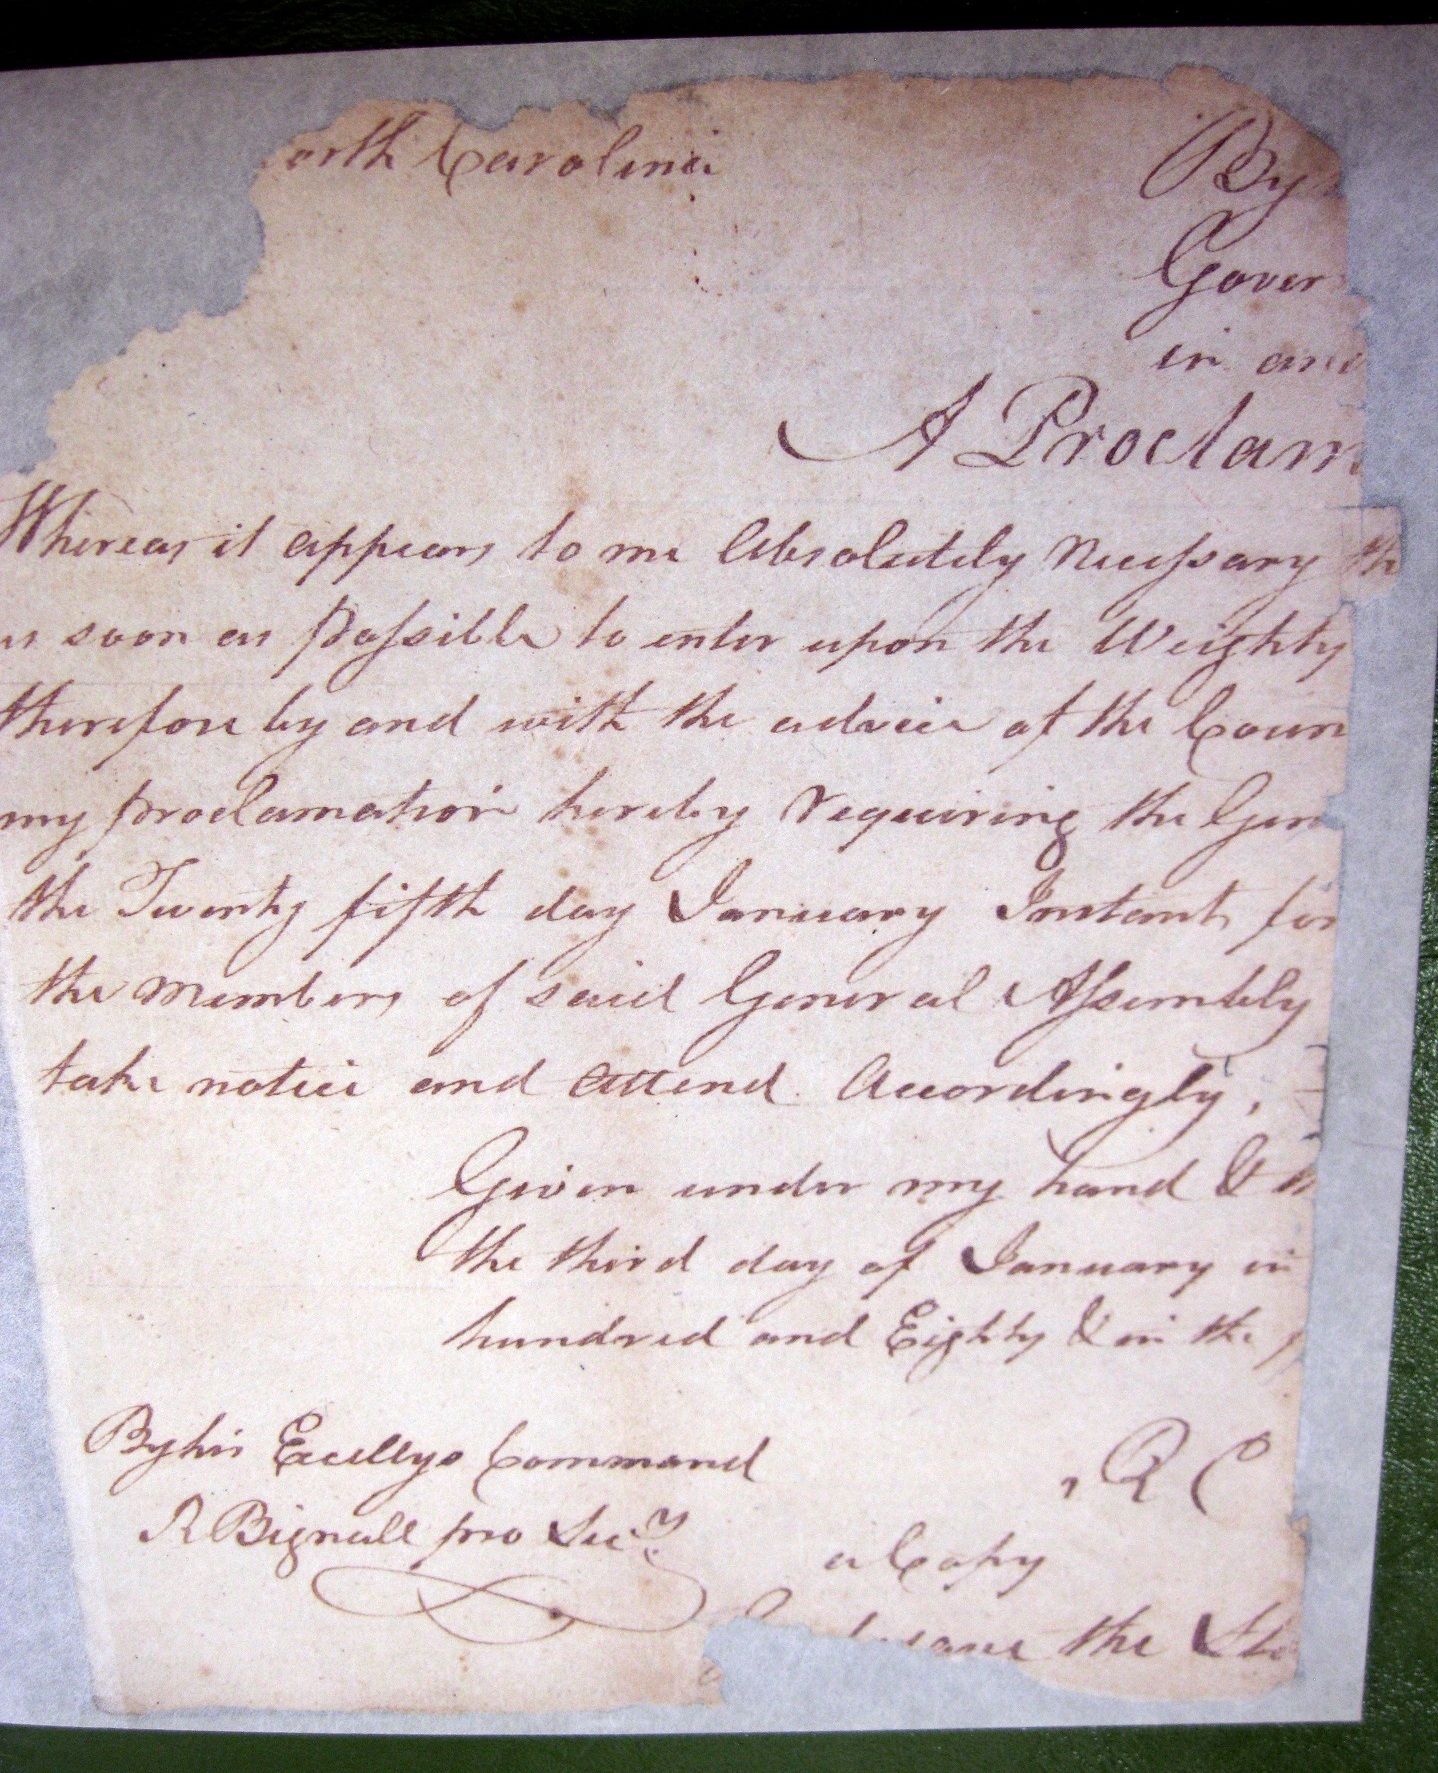 orth Carolina By
Gover
in and
A Proclam
Whereas it appears to me Absolutely Necessary th
as soon as possible to enter upon the Weighty
therefore by and with the advice of the Coun
my proclamation hereby requiring the Gen
the Twenty fifth day January Instant for
the members of said General Assembly
take notice and attend Accordingly,
Given under my hand & th
the third day of January in
hundred and Eighty & in the
By his Excellys Command
R C
R Bignall pro Secy.
a Copy
the She